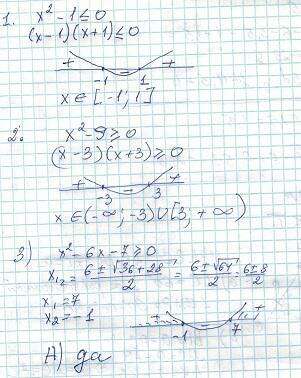 1. x² - 1 ≤ 0
(x-1)(x+1) ≤ 0
+ -1 - 1 +
x ∈ [-1; 1]
2. x² - 9 ≥ 0
(x-3)(x+3) ≥ 0
+ -3 - 3 +
x ∈ (-∞; -3) ∪ [3, +∞)
3) x² - 6x - 7 ≥ 0
x₁,₂ = (6 ± √(36+28))/2 = (6 ± √64)/2 = (6 ± 8)/2
x₁ = 7
x₂ = -1
-1 7
А) да